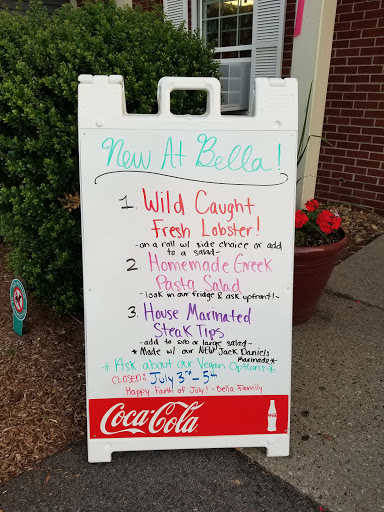 New At Bella!
1. Wild Caught
Fresh Lobster!
-on a roll w/ side choice or add
to a salad-
2. Homemade Greek
Pasta Salad
-look in our fridge & ask upfront!-
3. House Marinated
Steak Tips
-add to sub or large salad-
*Made w/ our NEW Jack Daniels
Marinade*
*Ask about our Vegan Options*
CLOSED: July 3rd-5th
Happy Fourth of July! -Bella Family
Coca-Cola